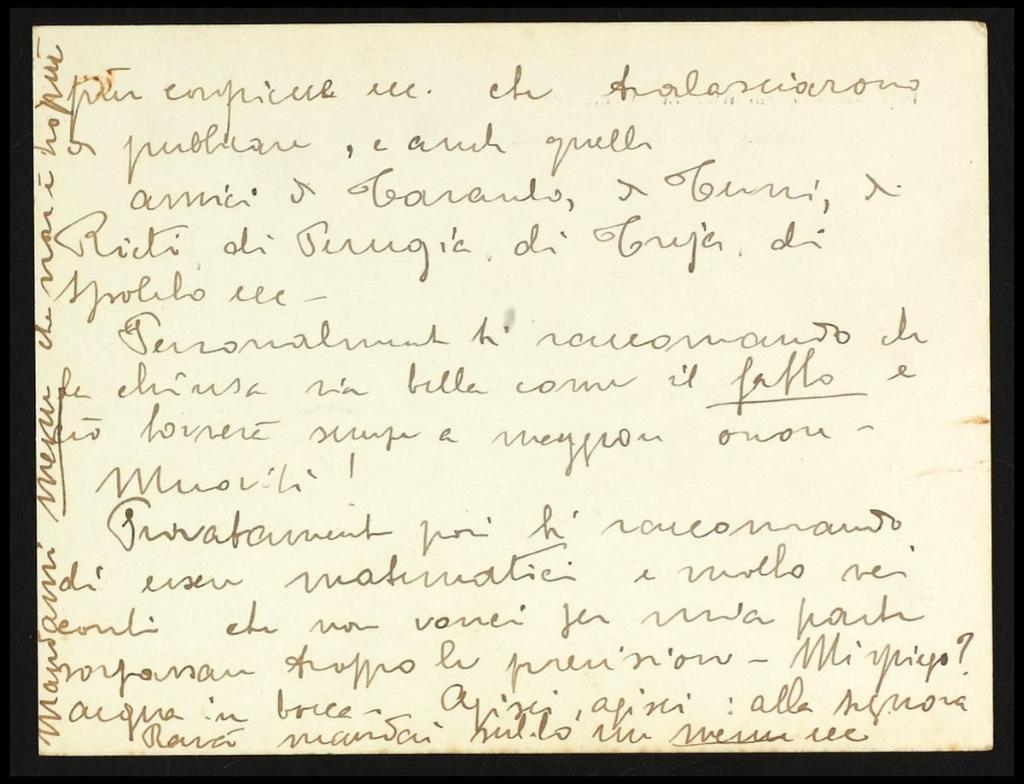 più cospicue ecc. che tralasciarono
di publicare, e anche quelle
amici di Taranto, di Terni, di
Rieti di Perugia, di Treja, di
Spoleto ecc –
Personalmente ti raccomando che
la chiusa sia bella come il fatto e
ciò tornerà sempre a maggior onore –
Muoviti!
Privatamente poi ti raccomando
di essere matematici e molto nei
conti che non vorrei per mia parte
sorpassare troppo le previsioni – Mi spiego?
acqua in bocca – Agisci, agisci: alla signora
Ravà mandai subito un menu ecc
Mandami menu che mai è troppo più